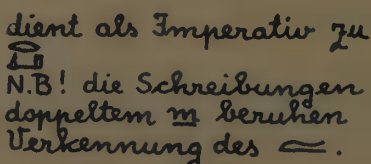 dient als Imperativ zu
N.B! die Schreibungen
doppeltem m beruhen
Verkennung des